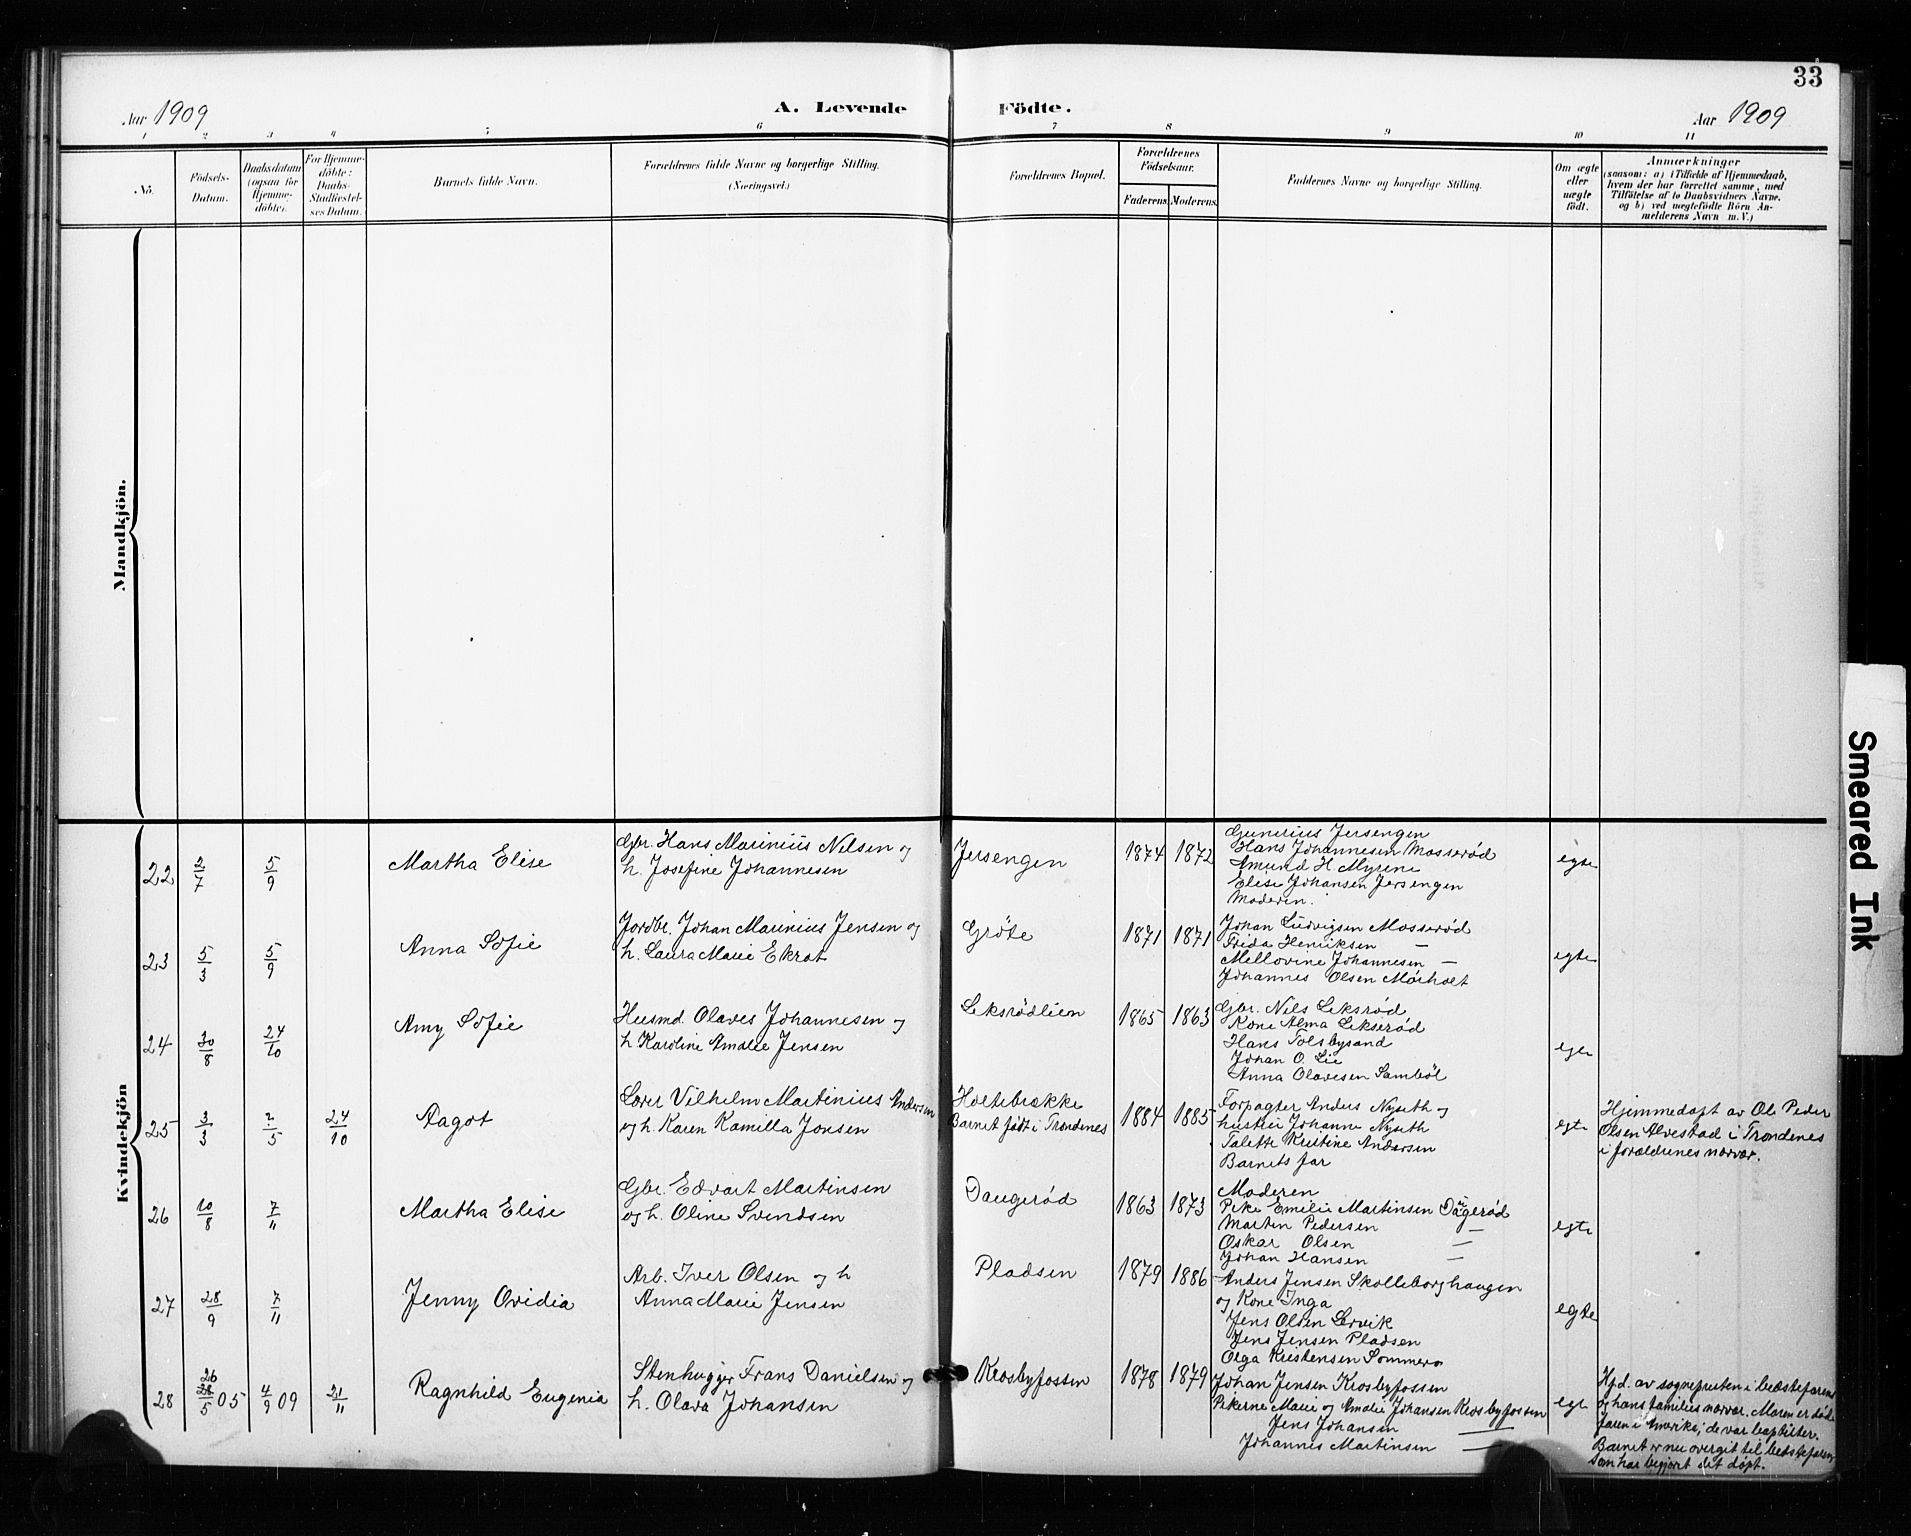 33
Aar 1909
A. Levende Födte.
Aar 1909
1 2 3 4 5 6 7 8 9 10 11
No.
Födsels-
Datum.
Daabsdatum
(ogsaa for
Hjemme-
döbte).
For Hjemme-
döbte:
Daabs-
Stadfæstel-
ses Datum.
Barnets fulde Navn.
Forældrenes fulde Navne og borgerlige Stilling.
(Næringsvei.)
Forældrenes Bopæl.
Forældrenes
Födselsaar.
Faderens. Moderens.
Faddernes Navne og borgerlige Stilling.
Om ægte
eller
uægte
födt.
Anmærkninger
(saasom: a) i Tilfælde af Hjemmedaab,
hvem der har forrettet samme, med
Tilföielse af to Daabsvidners Navne.
og b) ved uægtefödte Börn An-
melderens Navn m.V.)
Mandkjön.
Kvindekjön
22 2/7 5/9
Martha Elise
Gbr. Hans Marinius Nilsen og
h. Josefine Johannesen
Jersengen
1874 1872
Gunerius Jersengen
Hans Johannesen Mosserød
Amund H Myrene
Elise Johansen Jersengen
Moderen.
egte
23 5/3 5/9
Anna Sofie
Jordbr. Johan Marinius Jensen og
h. Laura Marie Ekrot
Grøte
1871 1871
Johan Ludvigsen Mosserød
Frida Henriksen —
Mellovine Johannesen —
Johannes Olsen Mørholt
egte
24 30/8 24/10
Amy Sofie
Husmd. Olaves Johannesen og
h Karoline Amalie Jensen
Leksrødlien
1865 1863
Gbr. Nils Leksrød
Kone Alma Lekserød
Hans Tolsbysand
Johan O. Lie
Anna Olavesen Sambøl
egte
25 3/3 2/5 24/10
Aagot
Lærer Vilhelm Martinius Andersen
og h. Karen Kamilla Jonsen
Holtebrække
Barnet født i Trondenes
1884 1885
Forpagter Anders Nyseth og
hustru Johanne Nyseth
Talette Kristine Andersen
Barnets far
egte
Hjemmedøpt av Ole Peder
Olsen Alvestad i Trondenes
i forældrenes nærvær.
26 10/8 7/11
Martha Elise
Gbr. Edvart Martinsen
og h. Oline Svendsen
Daugerød
1863 1873
Moderen
Pike Emilie Martinsen Daugerød
Marten Pedersen —
Oskar Olsen —
Johan Hansen —
egte
27 28/9 7/11
Jenny Ovidia
Arb. Iver Olsen og h
Anna Marie Jensen
Pladsen
1879 1886
Anders Jensen Skolleborghaugen
og Kone Inga
Jens Olsen Lervik
Jens Jensen Pladsen
Olga Kristensen Sommero
egte
28 26/5 05 4/9 09 21/11
Ragnhild Eugenia
Stenhugger Frans Danielsen og
h. Olava Johansen
Krosbyfossen
1878 1879
Johan Jensen Krosbyfossen
Pikerne Marie og Amalie Johansen Krosbyfossen
Jens Johansen —
Johannes Martinsen —
egte
Hjd. av sognepresten i bedstefarens
og hans families nærvær. Moren er død
faren i Amerika; de var baptister.
Barnet er nu overgit til bedstefaren,
som har begjæret det døpt.
Smeared Ink